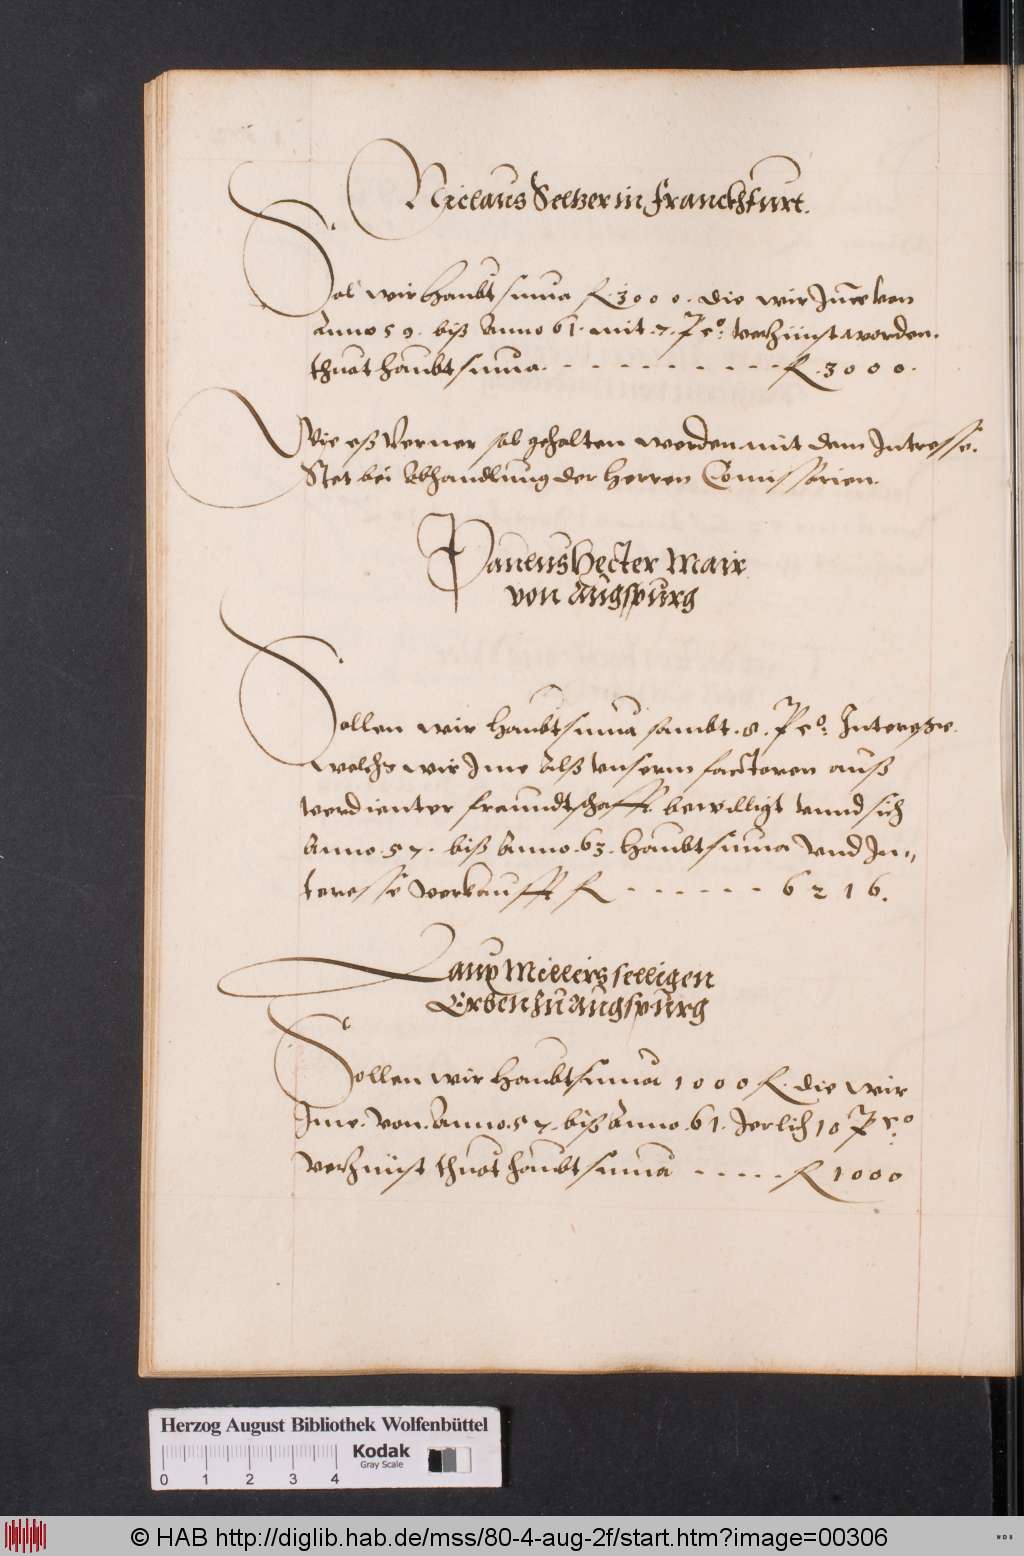 Niclaus Seltzer in Franckhfurt.
Sol wir haubt suma fl. 3000. die wir Ime von
Anno 59. biß Anno 61. mit .7. P co: verzinst worden.
thuet haubt suma. - - - - - - - - - - fl. 3000.
Wie eß verner sol gehalten werden mit dem Intresse.
Stet bei Abhandlung der Herren Comissarien.
Paulus Hecter Mair
von Augspurg
Sollen wir haubt suma sambt .8. P co: Interesse.
welchs wir Ime alß unserm factoren auß
verdienter freundtschafft bewilligt unnd sich
Anno .57. biß Anno .63. haubt suma und In„
teresse verlaufft fl - - - - - - 6216.
Laux Millers selligen
Erben zu Augspurg
Sollen wir haubt suma 1000 fl. die wir
Ime. von. Anno .57. biß Anno .61. Jerlich 10 P co:
verzinst thuet haubt suma - - - - - fl 1000
Herzog August Bibliothek Wolfenbüttel
Kodak
Gray Scale
0 1 2 3 4
© HAB http://diglib.hab.de/mss/80-4-aug-2f/start.htm?image=00306